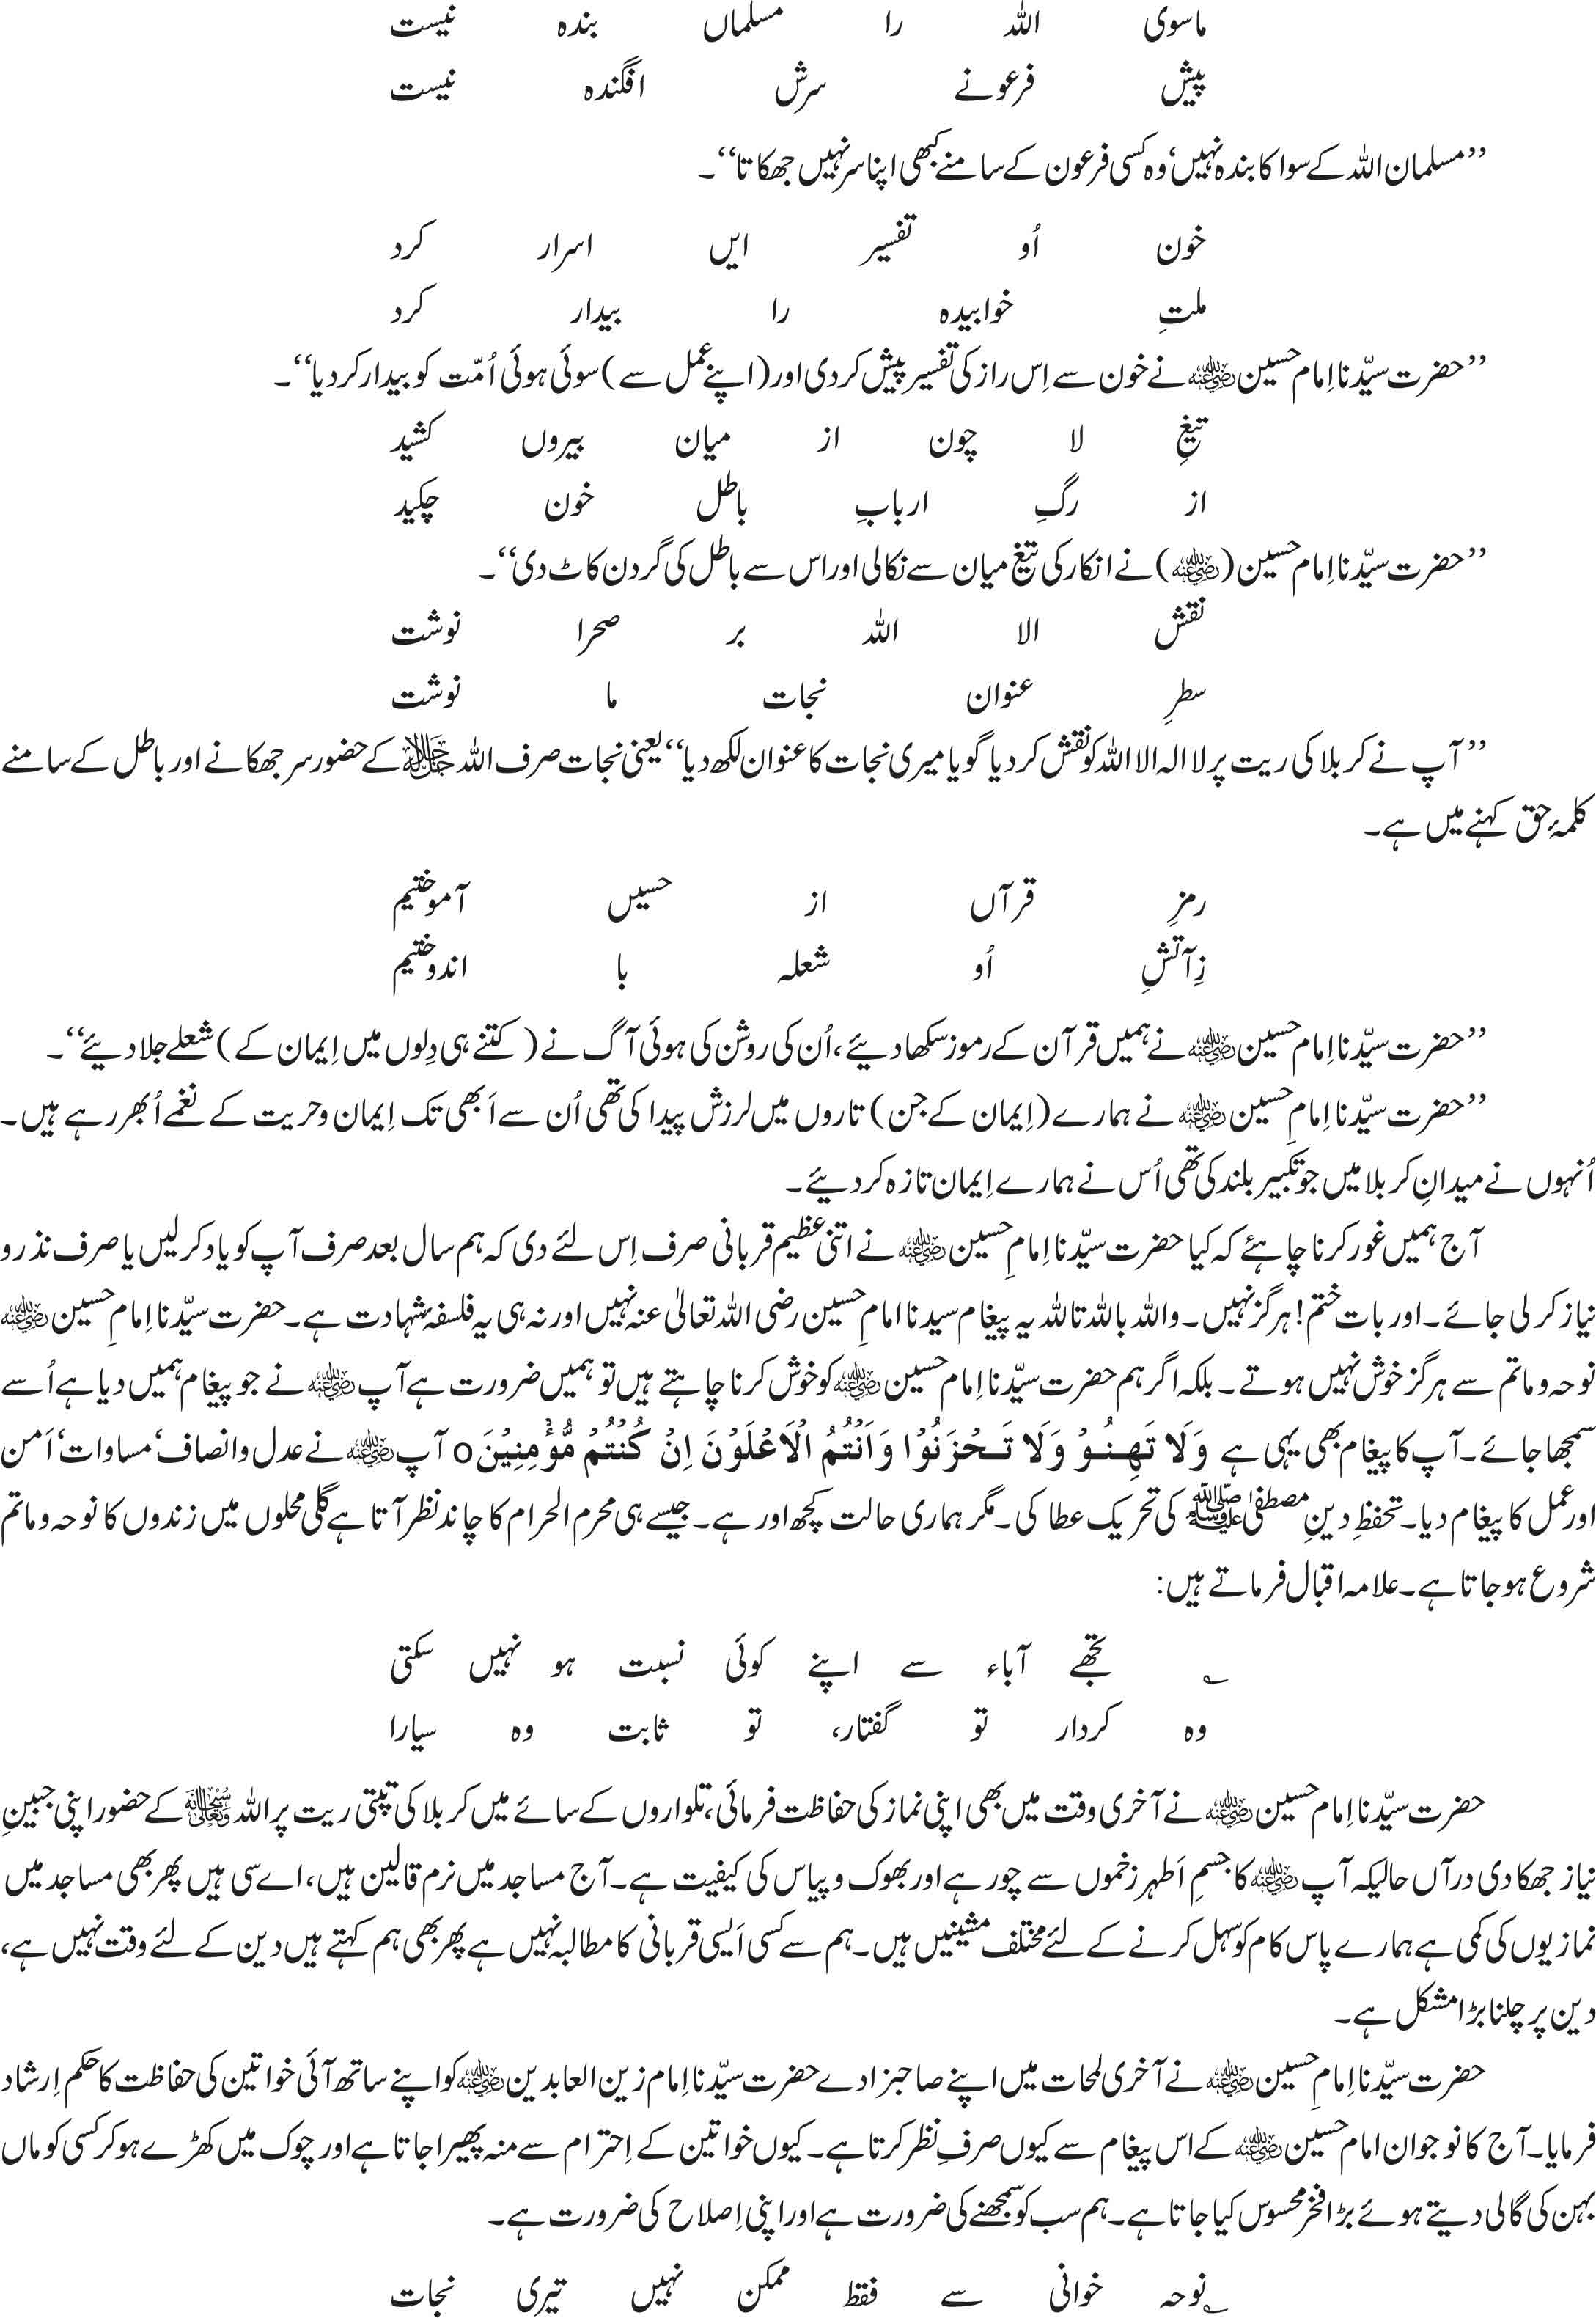 ماسوی اللہ را مسلماں بندہ نیست
پیش فرعونے سرش افگندہ نیست
’’مسلمان اللہ کے سوا کا بندہ نہیں‘ وہ کسی فرعون کے سامنے کبھی اپنا سر نہیں جھکاتا‘‘۔
خون اُو تفسیر ایں اسرار کرد
ملتِ خوابیدہ را بیدار کرد
’’حضرت سیّدنا اِمام حسین ﷛ نے خون سے اِس راز کی تفسیر پیش کر دی اور (اپنے عمل سے) سوئی ہوئی اُمّت کو بیدار کر دیا‘‘۔
تیغِ لا چون از میان بیروں کشید
از رگِ اربابِ باطل خون چکید
’’حضرت سیّدنا اِمام حسین (﷛) نے انکار کی تیغ میان سے نکالی اور اس سے باطل کی گردن کاٹ دی‘‘۔
نقش الا اللہ بر صحرا نوشت
سطرِ عنوان نجات ما نوشت
’’آپ نے کربلا کی ریت پر لا الہ الا اللہ کو نقش کر دیا گویا میری نجات کا عنوان لکھ دیا‘‘ یعنی نجات صرف اللہ ﷻ کے حضور سر جھکانے اور باطل کے سامنے
کلمۂ حق کہنے میں ہے۔
رمزِ قرآں از حسیں آموختیم
زِآتشِ اُو شعلہ با اندوختیم
’’حضرت سیّدنا اِمام حسین ﷛ نے ہمیں قرآن کے رموز سکھا دیئے، اُن کی روشن کی ہوئی آگ نے (کتنے ہی دِلوں میں اِیمان کے) شعلے جلا دیئے‘‘۔
’’حضرت سیّدنا اِمامِ حسین ﷛ نے ہمارے (اِیمان کے جن) تاروں میں لرزش پیدا کی تھی اُن سے اَبھی تک اِیمان وحریت کے نغمے اُبھر رہے ہیں۔
اُنہوں نے میدانِ کربلا میں جو تکبیر بلند کی تھی اُس نے ہمارے اِیمان تازہ کر دیئے۔
آج ہمیں غور کرنا چاہئے کہ کیا حضرت سیّدنا اِمامِ حسین ﷛ نے اتنی عظیم قربانی صرف اِس لئے دی کہ ہم سال بعد صرف آپ کو یاد کر لیں یا صرف نذر و
نیاز کر لی جائے۔ اور بات ختم! ہرگز نہیں۔ واللہ باللہ تاللہ یہ پیغام سیدنا امامِ حسین رضی اللہ تعالیٰ عنہ نہیں اور نہ ہی یہ فلسفۂ شہادت ہے۔ حضرت سیّدنا اِمامِ حسین ﷛
نوحہ و ماتم سے ہرگز خوش نہیں ہوتے۔ بلکہ اگر ہم حضرت سیّدنا اِمام حسین ﷛ کو خوش کرنا چاہتے ہیں تو ہمیں ضرورت ہے آپ ﷛ نے جو پیغام ہمیں دیا ہے اُسے
سمجھا جائے۔ آپ کا پیغام بھی یہی ہے وَلَا تَهِنُوْ وَلَا تَحْزَنُوْا وَاَنْتُمُ الْاَعْلَوْنَ اِنْ كُنْتُمْ مُّؤْمِنِيْنَo آپ ﷛ نے عدل و انصاف‘ مساوات‘ اَمن
اور عمل کا پیغام دیا۔ تحفظِ دینِ مصطفیٰ ﷺ کی تحریک عطا کی۔ مگر ہماری حالت کچھ اور ہے۔ جیسے ہی محرم الحرام کا چاند نظر آتا ہے گلی محلوں میں زندوں کا نوحہ و ماتم
شروع ہو جاتا ہے۔ علامہ اقبال فرماتے ہیں:
؎ تجھے آباء سے اپنے کوئی نسبت ہو نہیں سکتی
وہ کردار تو گفتار، تو ثابت وہ سیارا
حضرت سیّدنا اِمام حسین ﷛ نے آخری وقت میں بھی اپنی نماز کی حفاظت فرمائی، تلواروں کے سائے میں کربلا کی تپتی ریت پر اللہ سُبْحَانَهٗ وَتَعَالٰی کے حضور اپنی جبینِ
نیاز جھکا دی درآں حالیکہ آپ ﷛ کا جسمِ اَطہر زخموں سے چور ہے اور بھوک و پیاس کی کیفیت ہے۔ آج مساجد میں نرم قالین ہیں، اے سی ہیں پھر بھی مساجد میں
نمازیوں کی کمی ہے ہمارے پاس کام کو سہل کرنے کے لئے مختلف مشینیں ہیں۔ ہم سے کسی اَیسی قربانی کا مطالبہ نہیں ہے پھر بھی ہم کہتے ہیں دین کے لئے وقت نہیں ہے،
دین پر چلنا بڑا مشکل ہے۔
حضرت سیّدنا اِمامِ حسین ﷛ نے آخری لمحات میں اپنے صاحبزادے حضرت سیّدنا اِمام زین العابدین ﷛ کو اپنے ساتھ آئی خواتین کی حفاظت کا حکم اِرشاد
فرمایا۔ آج کا نوجوان امام حسین ﷛ کے اس پیغام سے کیوں صرفِ نظر کرتا ہے۔ کیوں خواتین کے اِحترام سے منہ پھیرا جاتا ہے اور چوک میں کھڑے ہو کر کسی کو ماں
بہن کی گالی دیتے ہوئے بڑا فخر محسوس کیا جاتا ہے۔ ہم سب کو سمجھنے کی ضرورت ہے اور اپنی اِصلاح کی ضرورت ہے۔
؎ نوحہ خوانی سے فقط ممکن نہیں تیری نجات